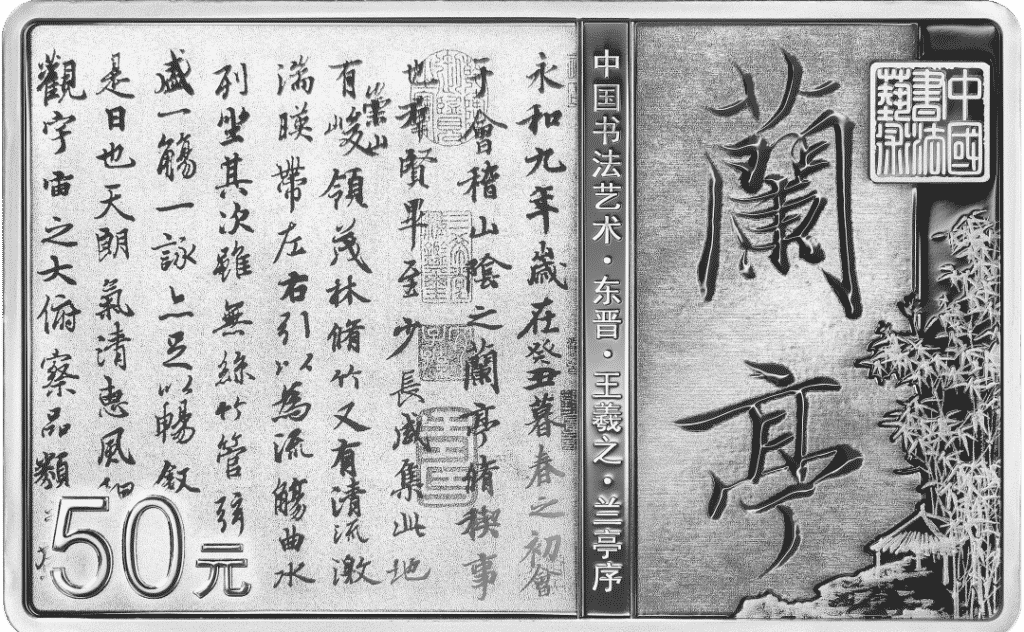 中國書法藝術
蘭亭
中国书法艺术·东晋·王羲之·兰亭序
永和九年歲在癸丑暮春之初會
于會稽山陰之蘭亭脩稧事
也羣賢畢至少長咸集此地
有崇山峻領茂林脩竹又有清流激
湍暎帶左右引以為流觴曲水
列坐其次雖無絲竹管弦
盛一觴一詠亦足以暢叙
是日也天朗氣清惠風和
觀宇宙之大俯察品類
50元